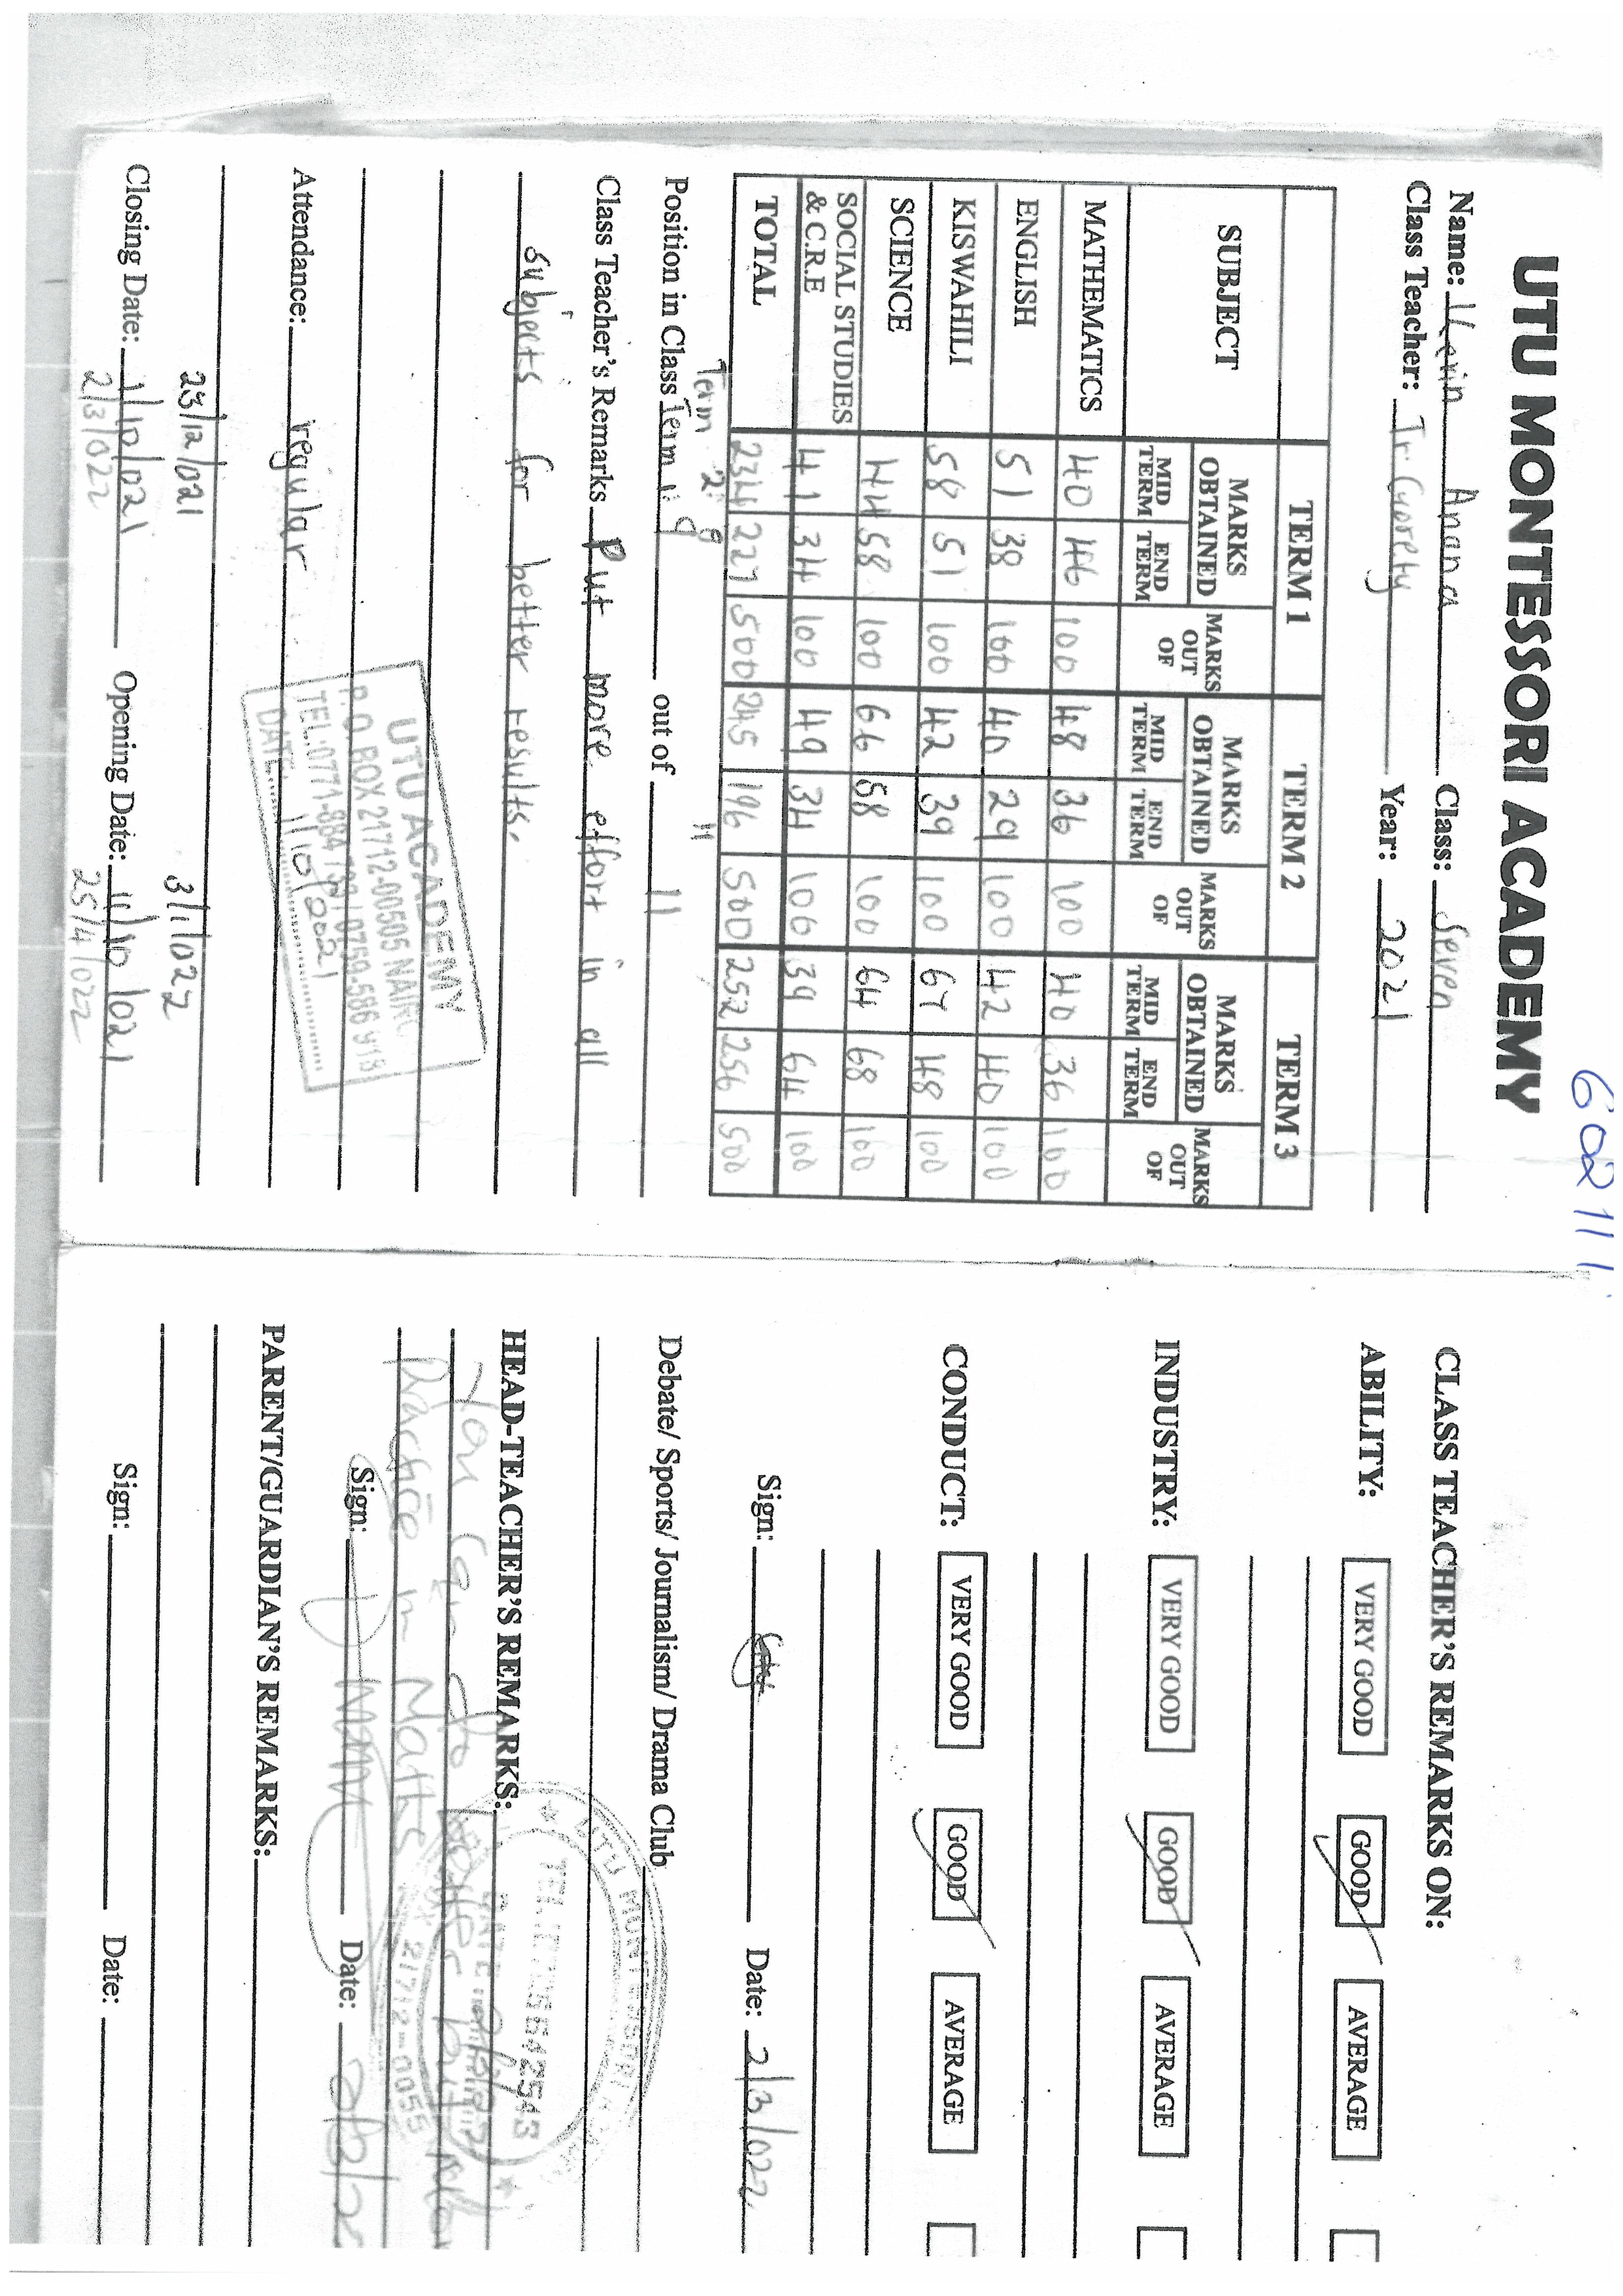 602111
UTU MONTESSORI ACADEMY
Name: Kevin Anana Class: Seven
Class Teacher: Tr Cuorety Year: 2021
TERM 1 TERM 2 TERM 3
SUBJECT MARKS OBTAINED MARKS OUT OF MARKS OBTAINED MARKS OUT OF MARKS OBTAINED MARKS OUT OF
MID TERM END TERM MID TERM END TERM MID TERM END TERM
MATHEMATICS 40 46 100 48 36 100 40 36 100
ENGLISH 51 38 100 40 29 100 42 40 100
KISWAHILI 58 51 100 42 39 100 67 48 100
SCIENCE 44 58 100 66 58 100 64 68 100
SOCIAL STUDIES & C.R.E 41 34 100 49 34 100 39 64 100
TOTAL 234 227 500 245 196 500 252 256 500
Term 2: 8 11
Position in Class Term 1: 9 out of 11
Class Teacher's Remarks Put more effort in all
subjects for better results.
Attendance: regular
UTU ACADEMY
P.O BOX 21712-00505 NAIR
DATE: 1/10/2021
23/12/021 3/1/022
Closing Date: 1/10/021 Opening Date: 11/10/021
2/3/022 25/4/022
CLASS TEACHER'S REMARKS ON:
ABILITY: VERY GOOD GOOD AVERAGE
INDUSTRY: VERY GOOD GOOD AVERAGE
CONDUCT: VERY GOOD GOOD AVERAGE
Sign: Date: 2/3/022
Debate/ Sports/ Journalism/ Drama Club
HEAD-TEACHER'S REMARKS:
You can do
Practice in Maths
Sign: Date:
UTU MONTESSORI
PARENT/GUARDIAN'S REMARKS:
Sign: Date: